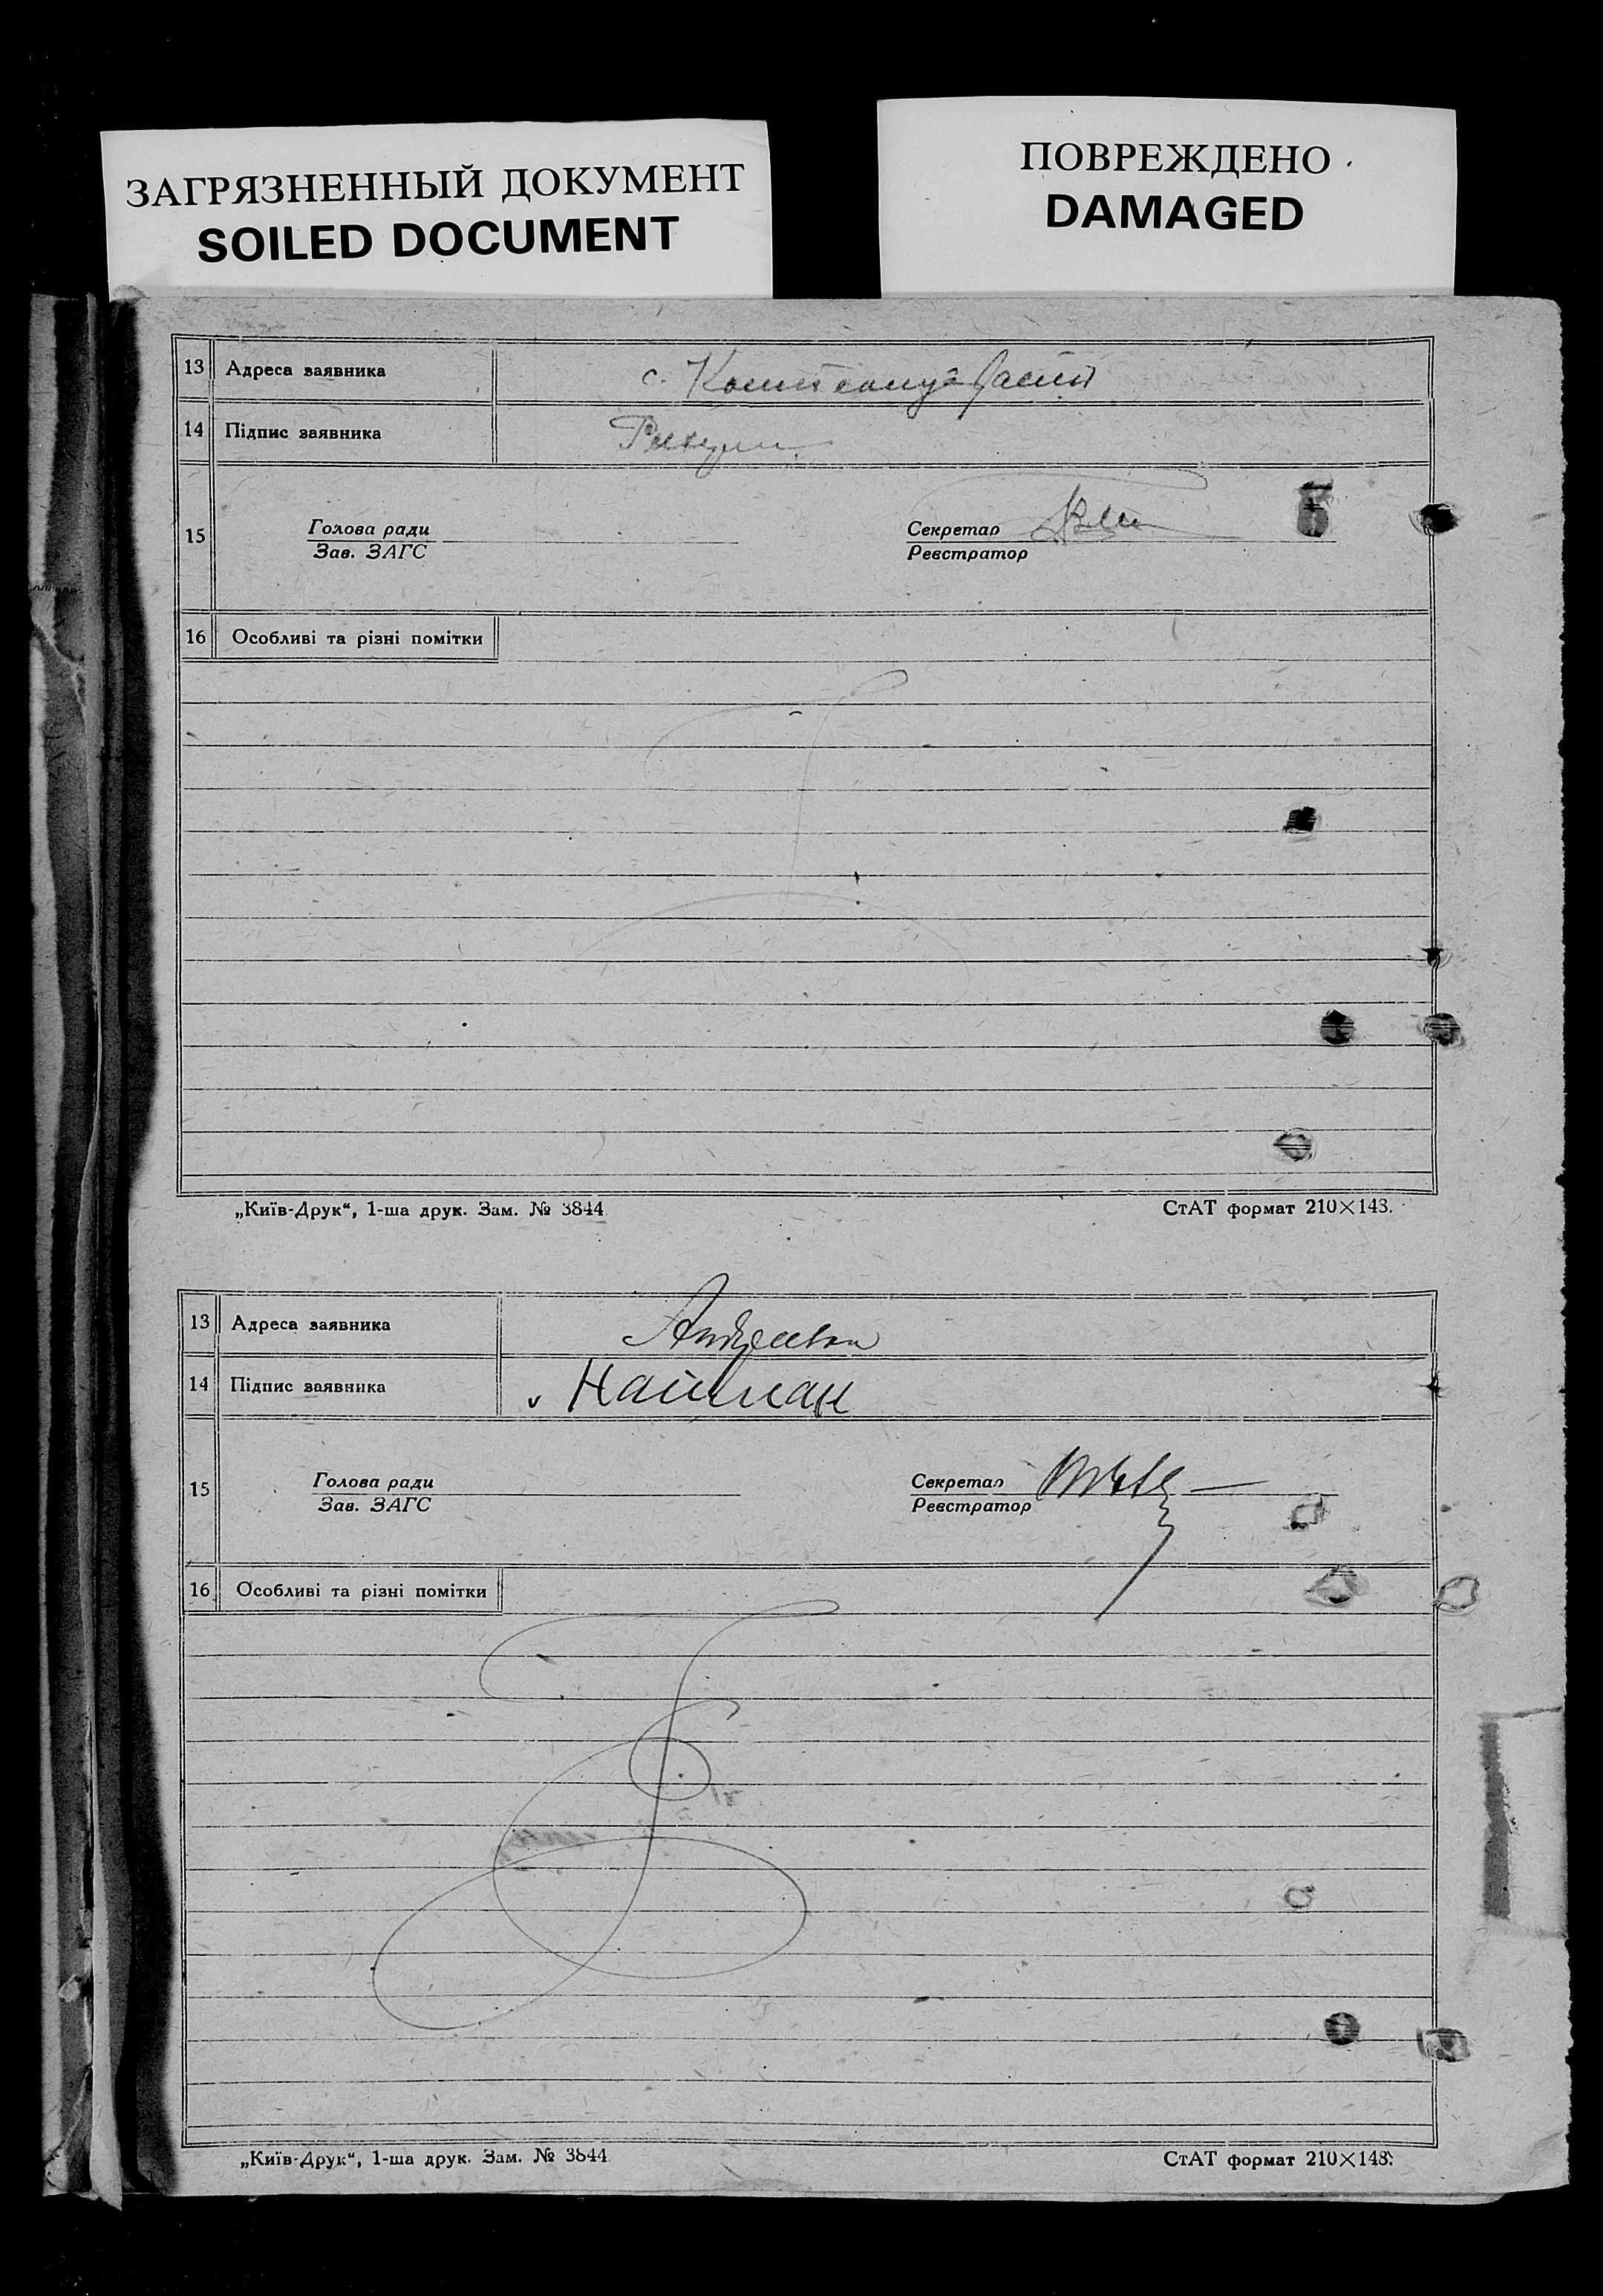 ЗАГРЯЗНЕННЫЙ ДОКУМЕНТ
SOILED DOCUMENT
ПОВРЕЖДЕНО
DAMAGED
13 Адреса заявника с.
14 Підпис заявника
15 Голова ради Секретар
Зав. ЗАГС Реєстратор
16 Особливі та різні помітки
„Київ-Друк“, 1-ша друк. Зам. № 3844 СтАТ формат 210×148.
13 Адреса заявника
14 Підпис заявника Найман
15 Голова ради Секретар
Зав. ЗАГС Реєстратор
16 Особливі та різні помітки
„Київ-Друк“, 1-ша друк. Зам. № 3844 СтАТ формат 210×148.